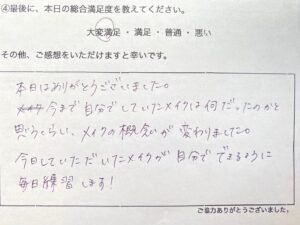 ④最後に、本日の総合満足度を教えてください。
大変満足 ・ 満足 ・ 普通 ・ 悪い
その他、ご感想をいただけますと幸いです。
本日はありがとうございました。
今まで自分でしていたメイクは何だったのかと
思うくらい、メイクの概念が変わりました。
今日していただいたメイクが自分でできるように
毎日練習します!
ご協力ありがとうございました。